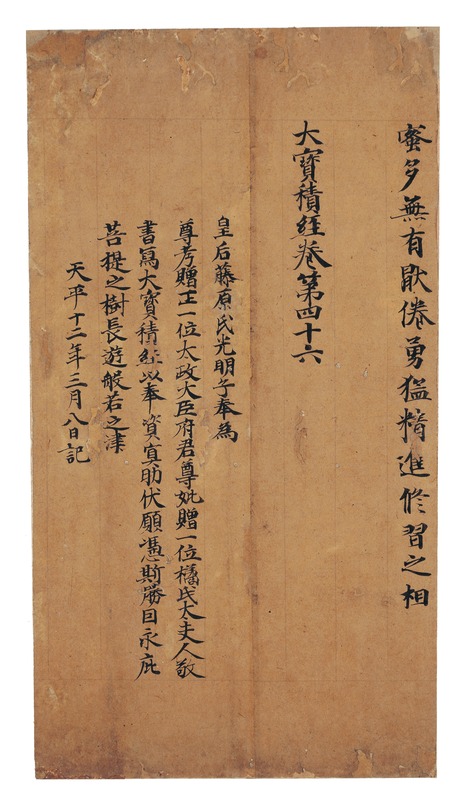 蜜多無有厭倦勇猛精進修習之相
大寶積經卷第四十六
皇后藤原氏光明子奉為
尊考贈正一位太政大臣府君尊妣贈一位橘氏太夫人敬
書寫大寶積經以奉資冥助伏願憑斯勝因永庇
菩提之樹長遊般若之津
天平十二年三月八日記